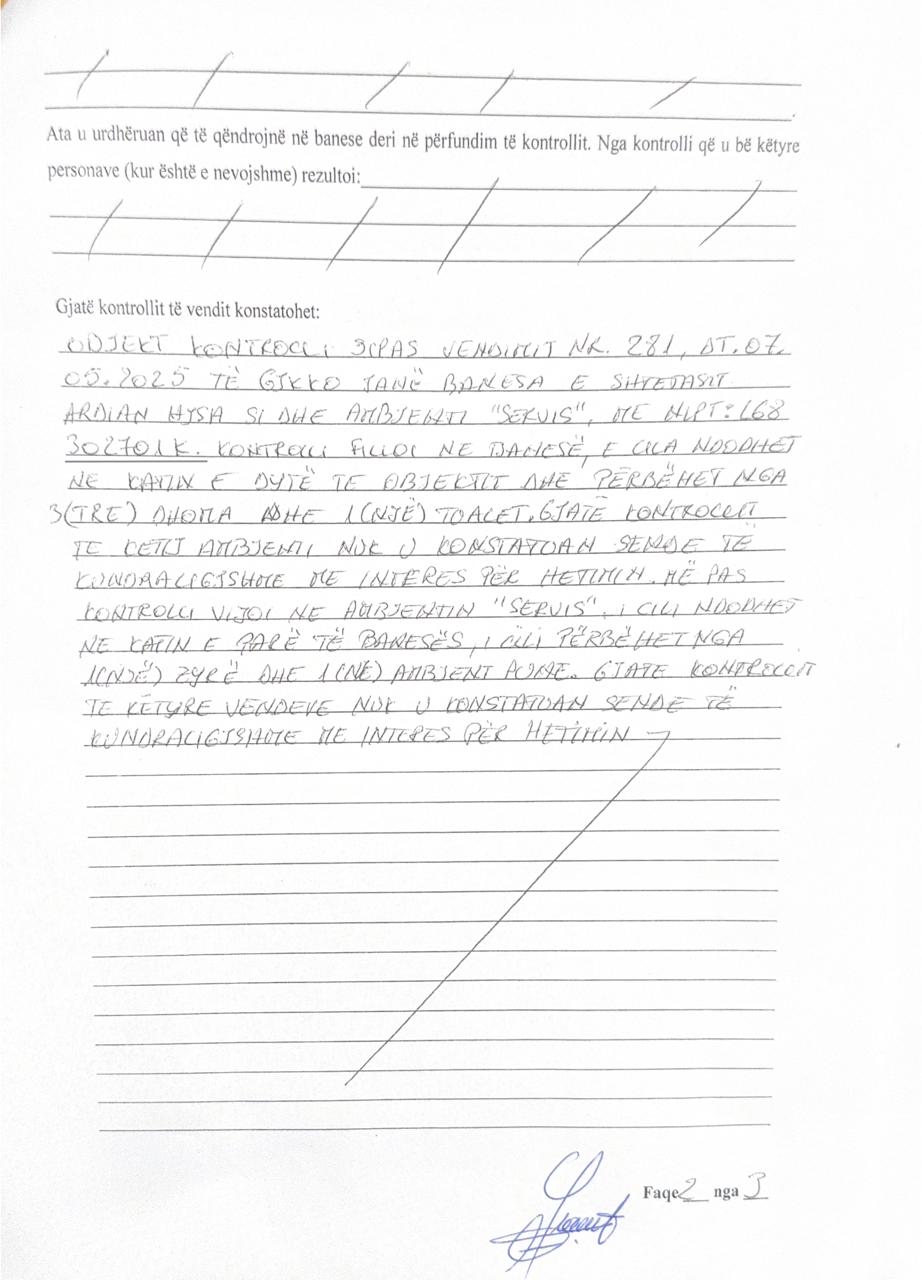 Ata u urdhëruan që të qëndrojnë në banese deri në përfundim të kontrollit. Nga kontrolli që u bë këtyre
personave (kur është e nevojshme) rezultoi:
Gjatë kontrollit të vendit konstatohet:
OBJEKT KONTROLLI SIPAS VENDIMIT NR. 281, DT.07.
05.2025 TË GJKKO JANË BANESA E SHTETASIT
ARDIAN HYSA SI DHE AMBJENTI "SERVIS", ME NIPT: L68
302701K. KONTROLLI FILLOI NE BANESË, E CILA NDODHET
NE KATIN E DYTË TE OBJEKTIT DHE PËRBËHET NGA
3(TRE) DHOMA DHE 1(NJË) TOALET. GJATË KONTROLLIT
TE KETIJ AMBJENTI, NUK U KONSTATUAN SENDE TË
KUNDRALIGJSHME ME INTERES PËR HETIMIN. MË PAS
KONTROLLI VIJOI NE AMBJENTIN "SERVIS", I CILI NDODHET
NE KATIN E PARË TË BANESËS, I CILI PËRBËHET NGA
1(NJË) ZYRË DHE 1(NË) AMBJENT PUNE. GJATE KONTROLLIT
TE KËTYRE VENDEVE NUK U KONSTATUAN SENDE TË
KUNDRALIGJSHME ME INTERES PËR HETIMIN
Faqe 2 nga 3